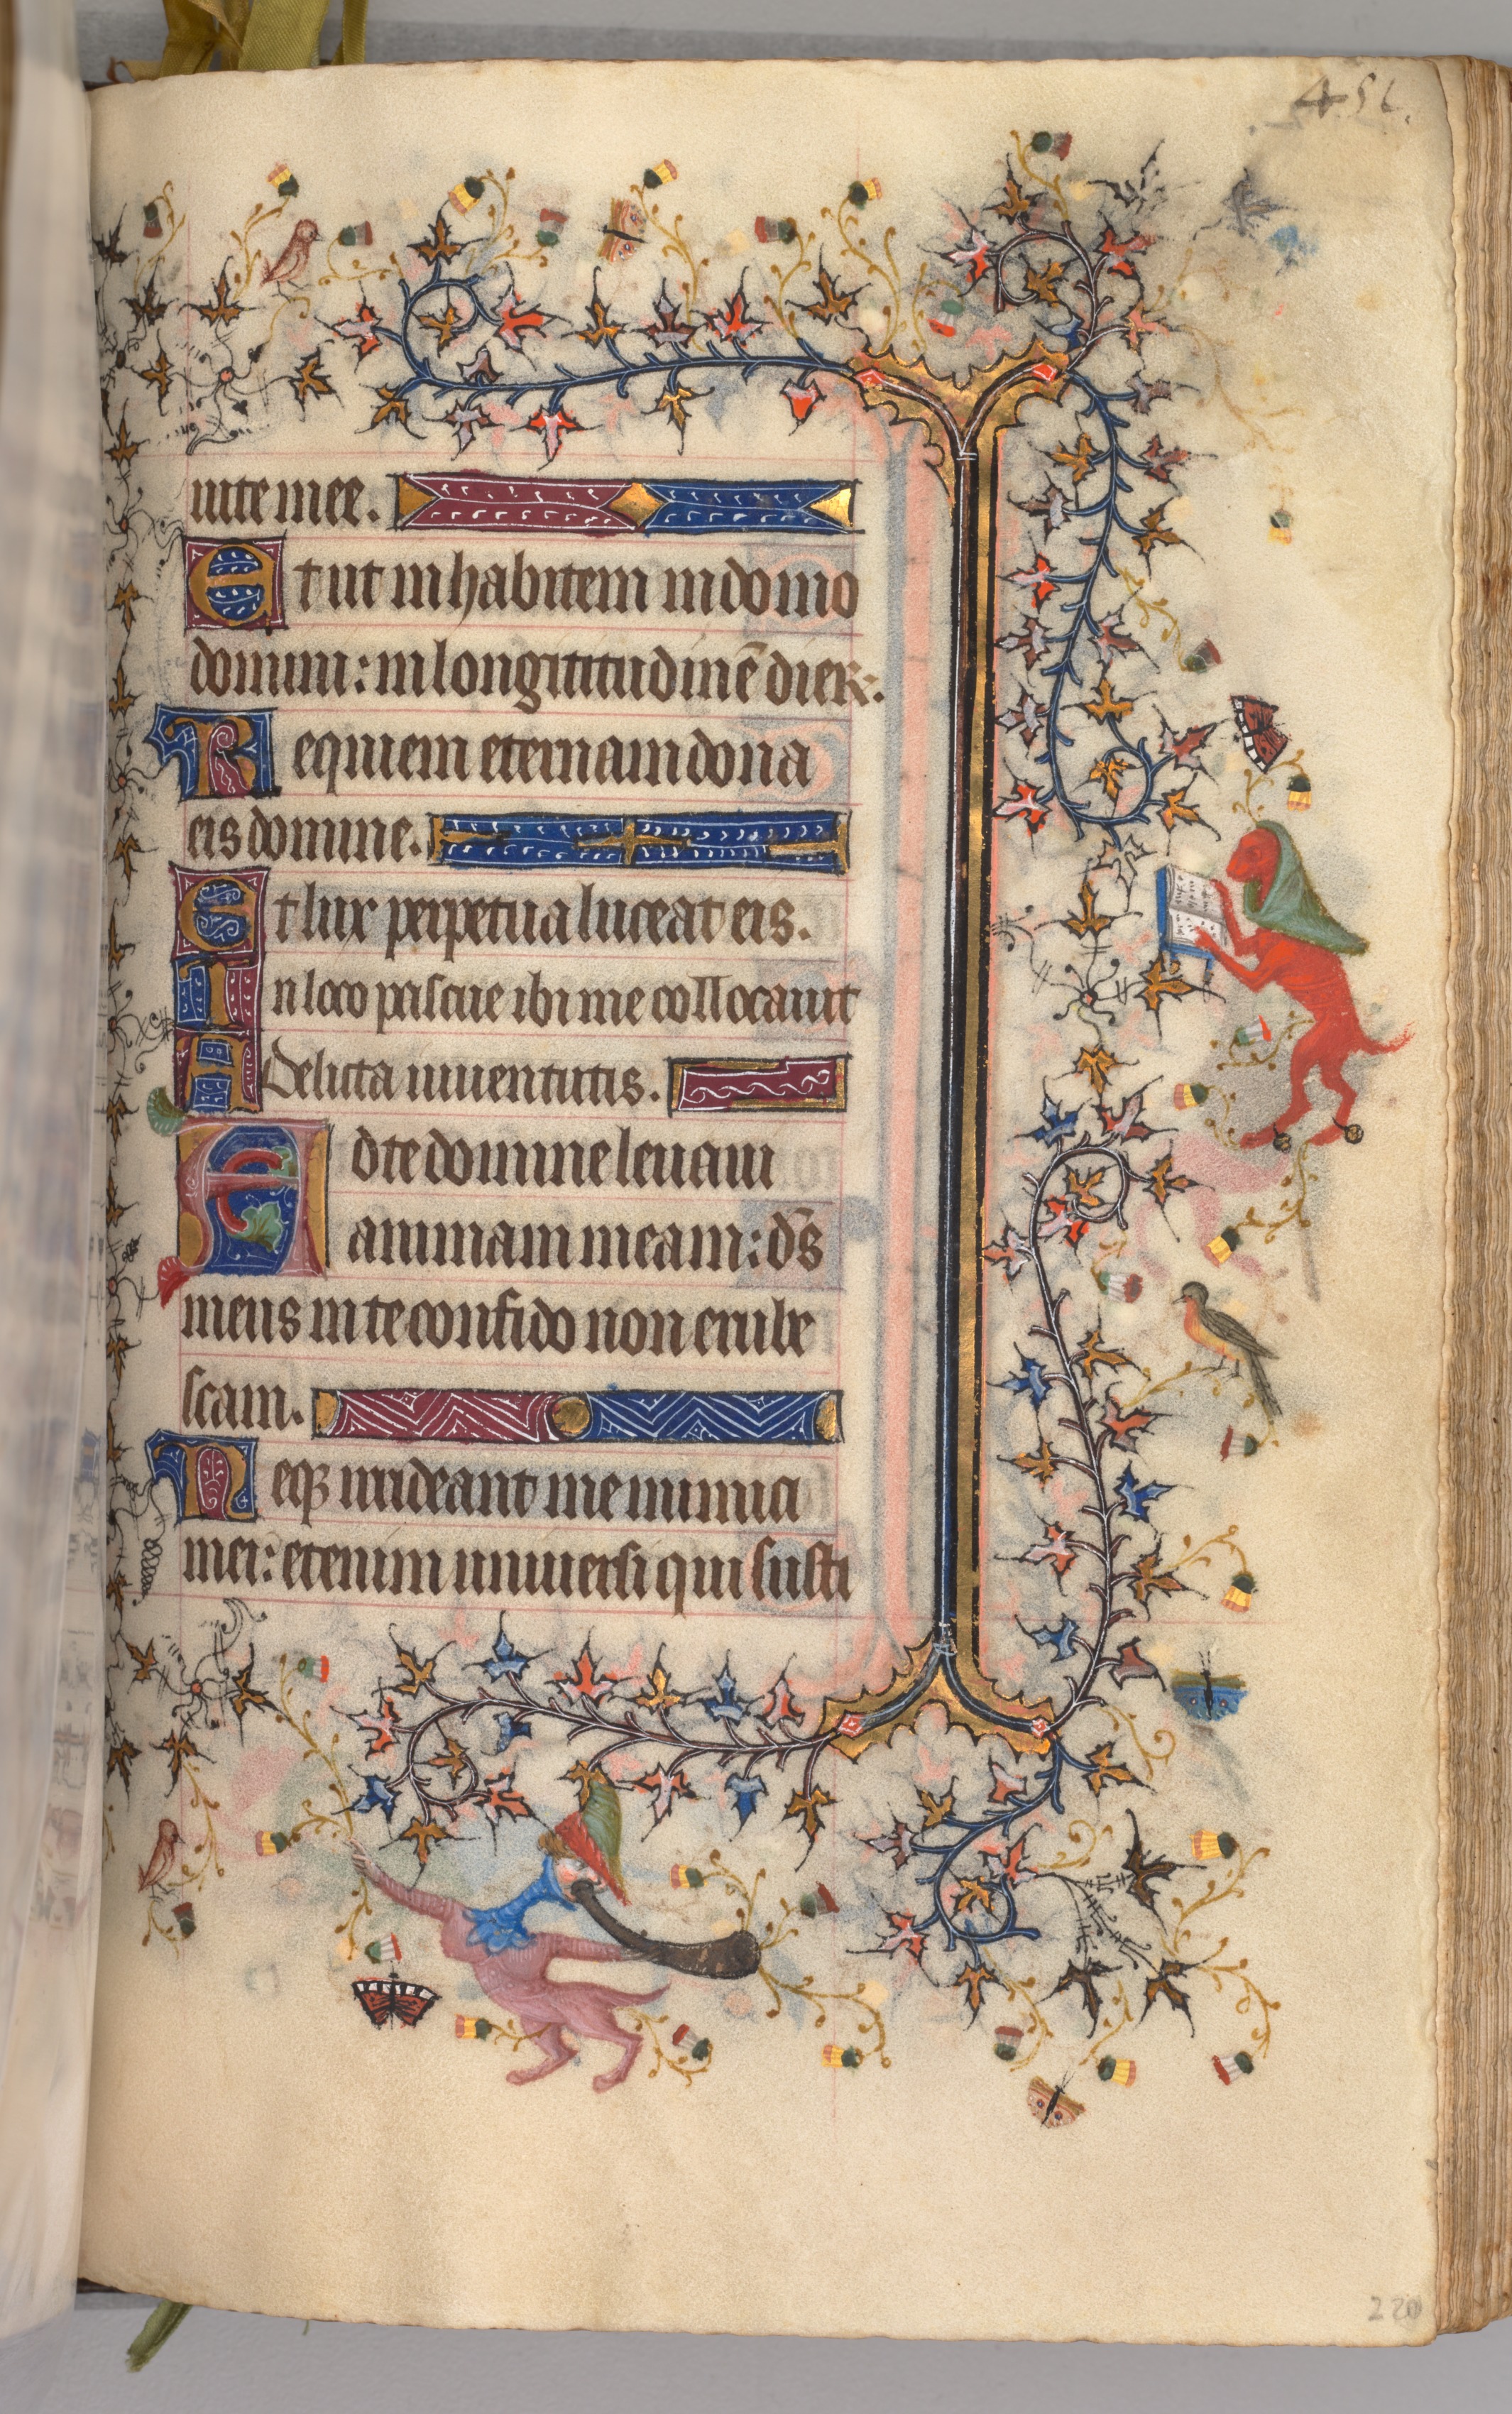 451.
uite mee.
Et ut inhabitem in domo
domini: in longititudinē dieꝝ.
Requiem eternam dona
eis domine.
Et lux perpetua luceat eis.
In loco pascue ibi me collocauit
A Delicta iuuentutis.
Ad te domine leuaui
animam meam: ds̄
meus in te confido non erube
scam.
Neqꝫ irrideant me inimici
mei: etenim uniuersi qui susti
220